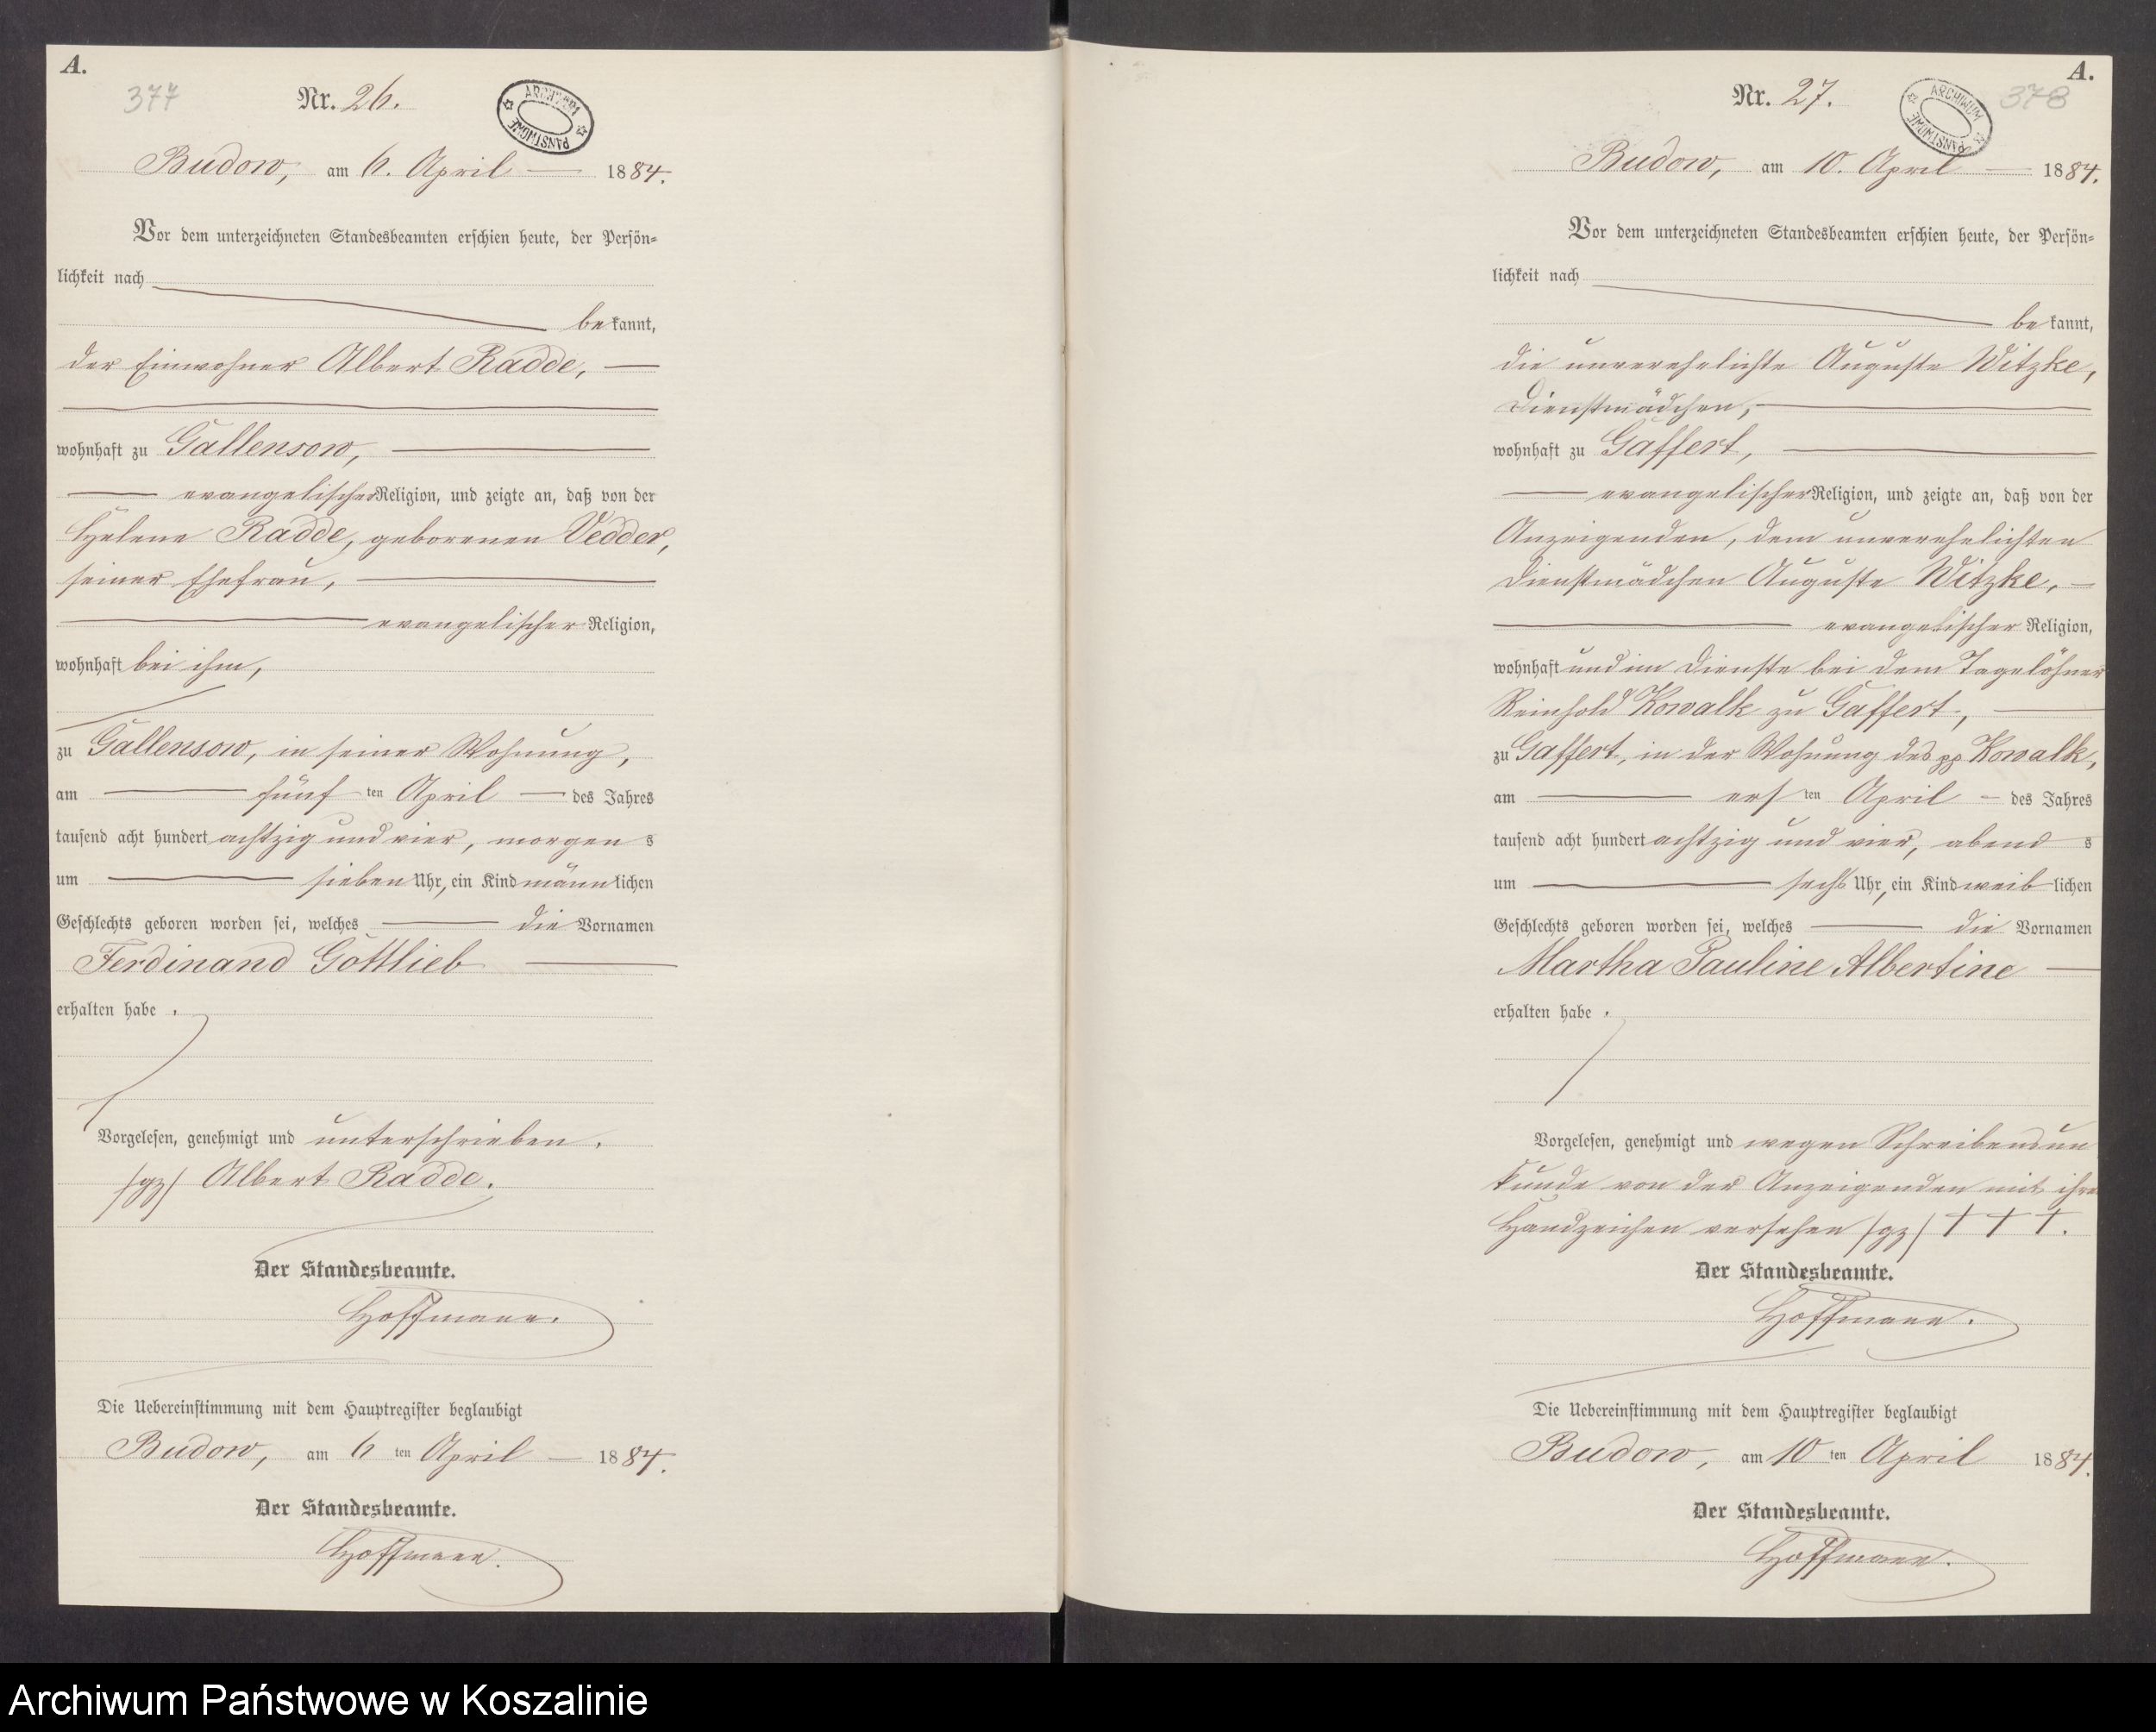 A.
377
Nr. 26.
ARCHIWUM PAŃSTWOWE
Budow, am 6. April 1884.
Vor dem unterzeichneten Standesbeamten erschien heute, der Persön-
lichkeit nach
bekannt,
der Einwohner Albert Radde,
wohnhaft zu Gallensow,
evangelischer Religion, und zeigte an, daß von der
Helene Radde, geborenen Vedder,
seiner Ehefrau,
evangelischer Religion,
wohnhaft bei ihm,
zu Gallensow, in seiner Wohnung,
am fünf ten April des Jahres
tausend acht hundert achtzig und vier, morgens
um sieben Uhr, ein Kind männlichen
Geschlechts geboren worden sei, welches die Vornamen
Ferdinand Gottlieb
erhalten habe.
Vorgelesen, genehmigt und unterschrieben.
/gz/ Albert Radde.
Der Standesbeamte.
Hoffmann.
Die Uebereinstimmung mit dem Hauptregister beglaubigt
Budow, am 6 ten April 1884.
Der Standesbeamte.
Hoffmann.
A.
378
Nr. 27.
ARCHIWUM PAŃSTWOWE
Budow, am 10. April 1884.
Vor dem unterzeichneten Standesbeamten erschien heute, der Persön-
lichkeit nach
bekannt,
die unverehelichte Auguste Witzke,
Dienstmädchen,
wohnhaft zu Gaffert,
evangelischer Religion, und zeigte an, daß von der
Anzeigenden, dem unverehelichten
Dienstmädchen Auguste Witzke,
evangelischer Religion,
wohnhaft und im Dienste bei dem Tagelöhner
Reinhold Kowalk zu Gaffert,
zu Gaffert, in der Wohnung des pp Kowalk,
am ers ten April des Jahres
tausend acht hundert achtzig und vier, abends
um sechs Uhr, ein Kind weiblichen
Geschlechts geboren worden sei, welches die Vornamen
Martha Pauline Albertine
erhalten habe.
Vorgelesen, genehmigt und wegen Schreibensun
kunde von der Anzeigenden mit ihrem
Handzeichen versehen /gz/ † † †.
Der Standesbeamte.
Hoffmann.
Die Uebereinstimmung mit dem Hauptregister beglaubigt
Budow, am 10 ten April 1884.
Der Standesbeamte.
Hoffmann.
Archiwum Państwowe w Koszalinie